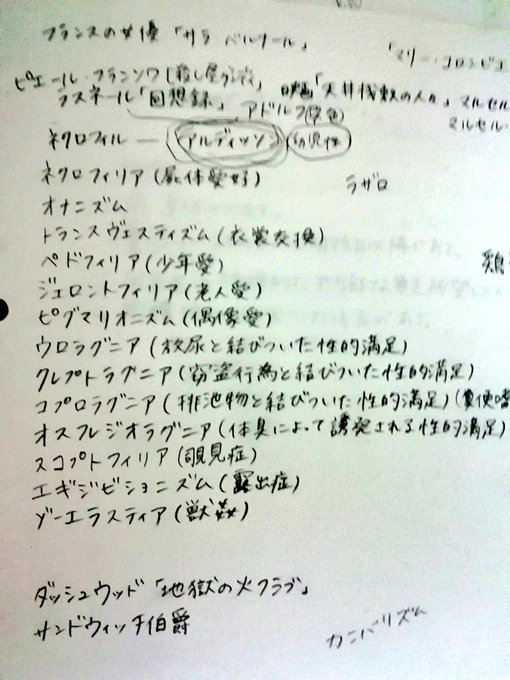 フランスの女優「サラ ベルナール」
「マリー・コロンビエ
ピエール・フランソワ「殺し屋 詩人」
ラスネール「回想録」
映画「天井桟敷の人々」マルセル
アドルフ
マルセル・
ネクロフィル ― アルディッソン (幼児性)
ネクロフィリア(屍体愛好)
ラザロ
オナニズム
トランスヴェスティズム(衣裳交換)
ペドフィリア(少年愛)
鶏
ジェロントフィリア(老人愛)
ピグマリオニズム(偶像愛)
ウロラグニア(放尿と結びついた性的満足)
クレプトラグニア(窃盗行為と結びついた性的満足)
コプロラグニア(排泄物と結びついた性的満足)(糞便嗜
オスフレジオラグニア(体臭によって誘発される性的満足)
スコプトフィリア(覗見症)
エギジビショニズム(露出症)
ゾーエラスティア(獣姦)
ダッシュウッド「地獄の火クラブ」
サンドウィッチ伯爵
カニバリズム